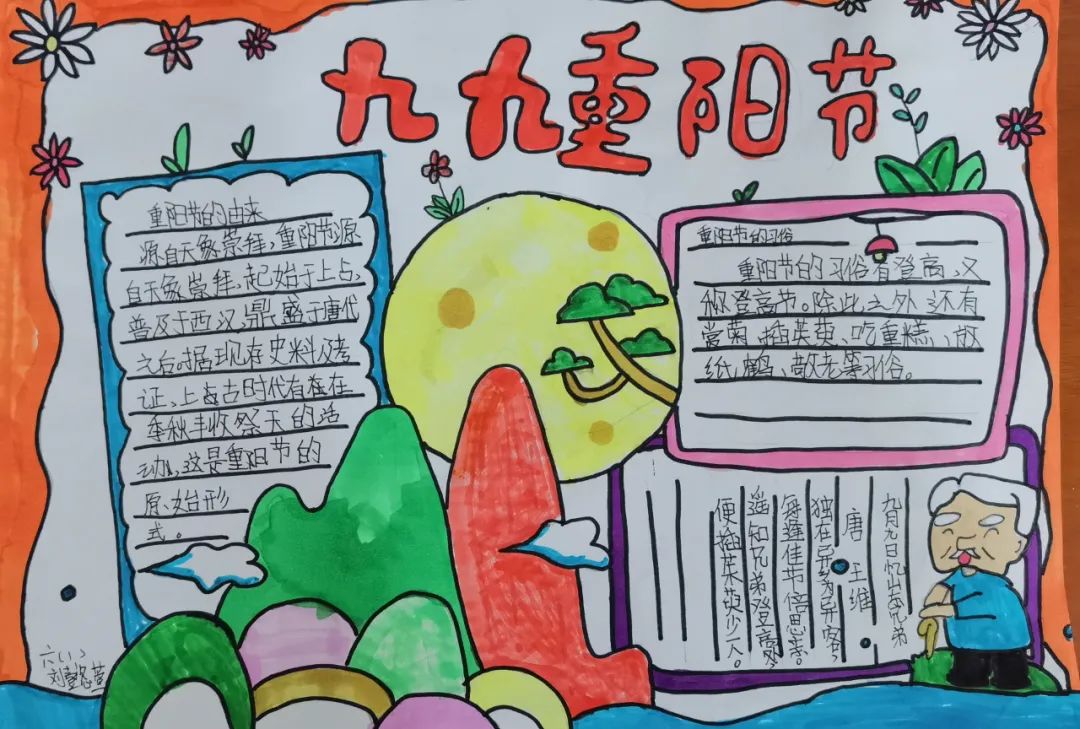 九九重阳节
重阳节的由来
源自天象崇拜,重阳节源
自天象崇拜,起始于上古,
普及于西汉,鼎盛于唐代
之后。据现存史料及考
证,上古时代有在
季秋丰收祭天的活
动,这是重阳节的
原始形
式。
重阳节的习俗
重阳节的习俗有登高,又
称登高节。除此之外还有
赏菊、插茱萸、吃重糕、放
纸鹞、敬老等习俗。
九月九日忆山东兄弟
唐 王维
独在异乡为异客,
每逢佳节倍思亲。
遥知兄弟登高处,
便插茱萸少一人。
六(1)
刘